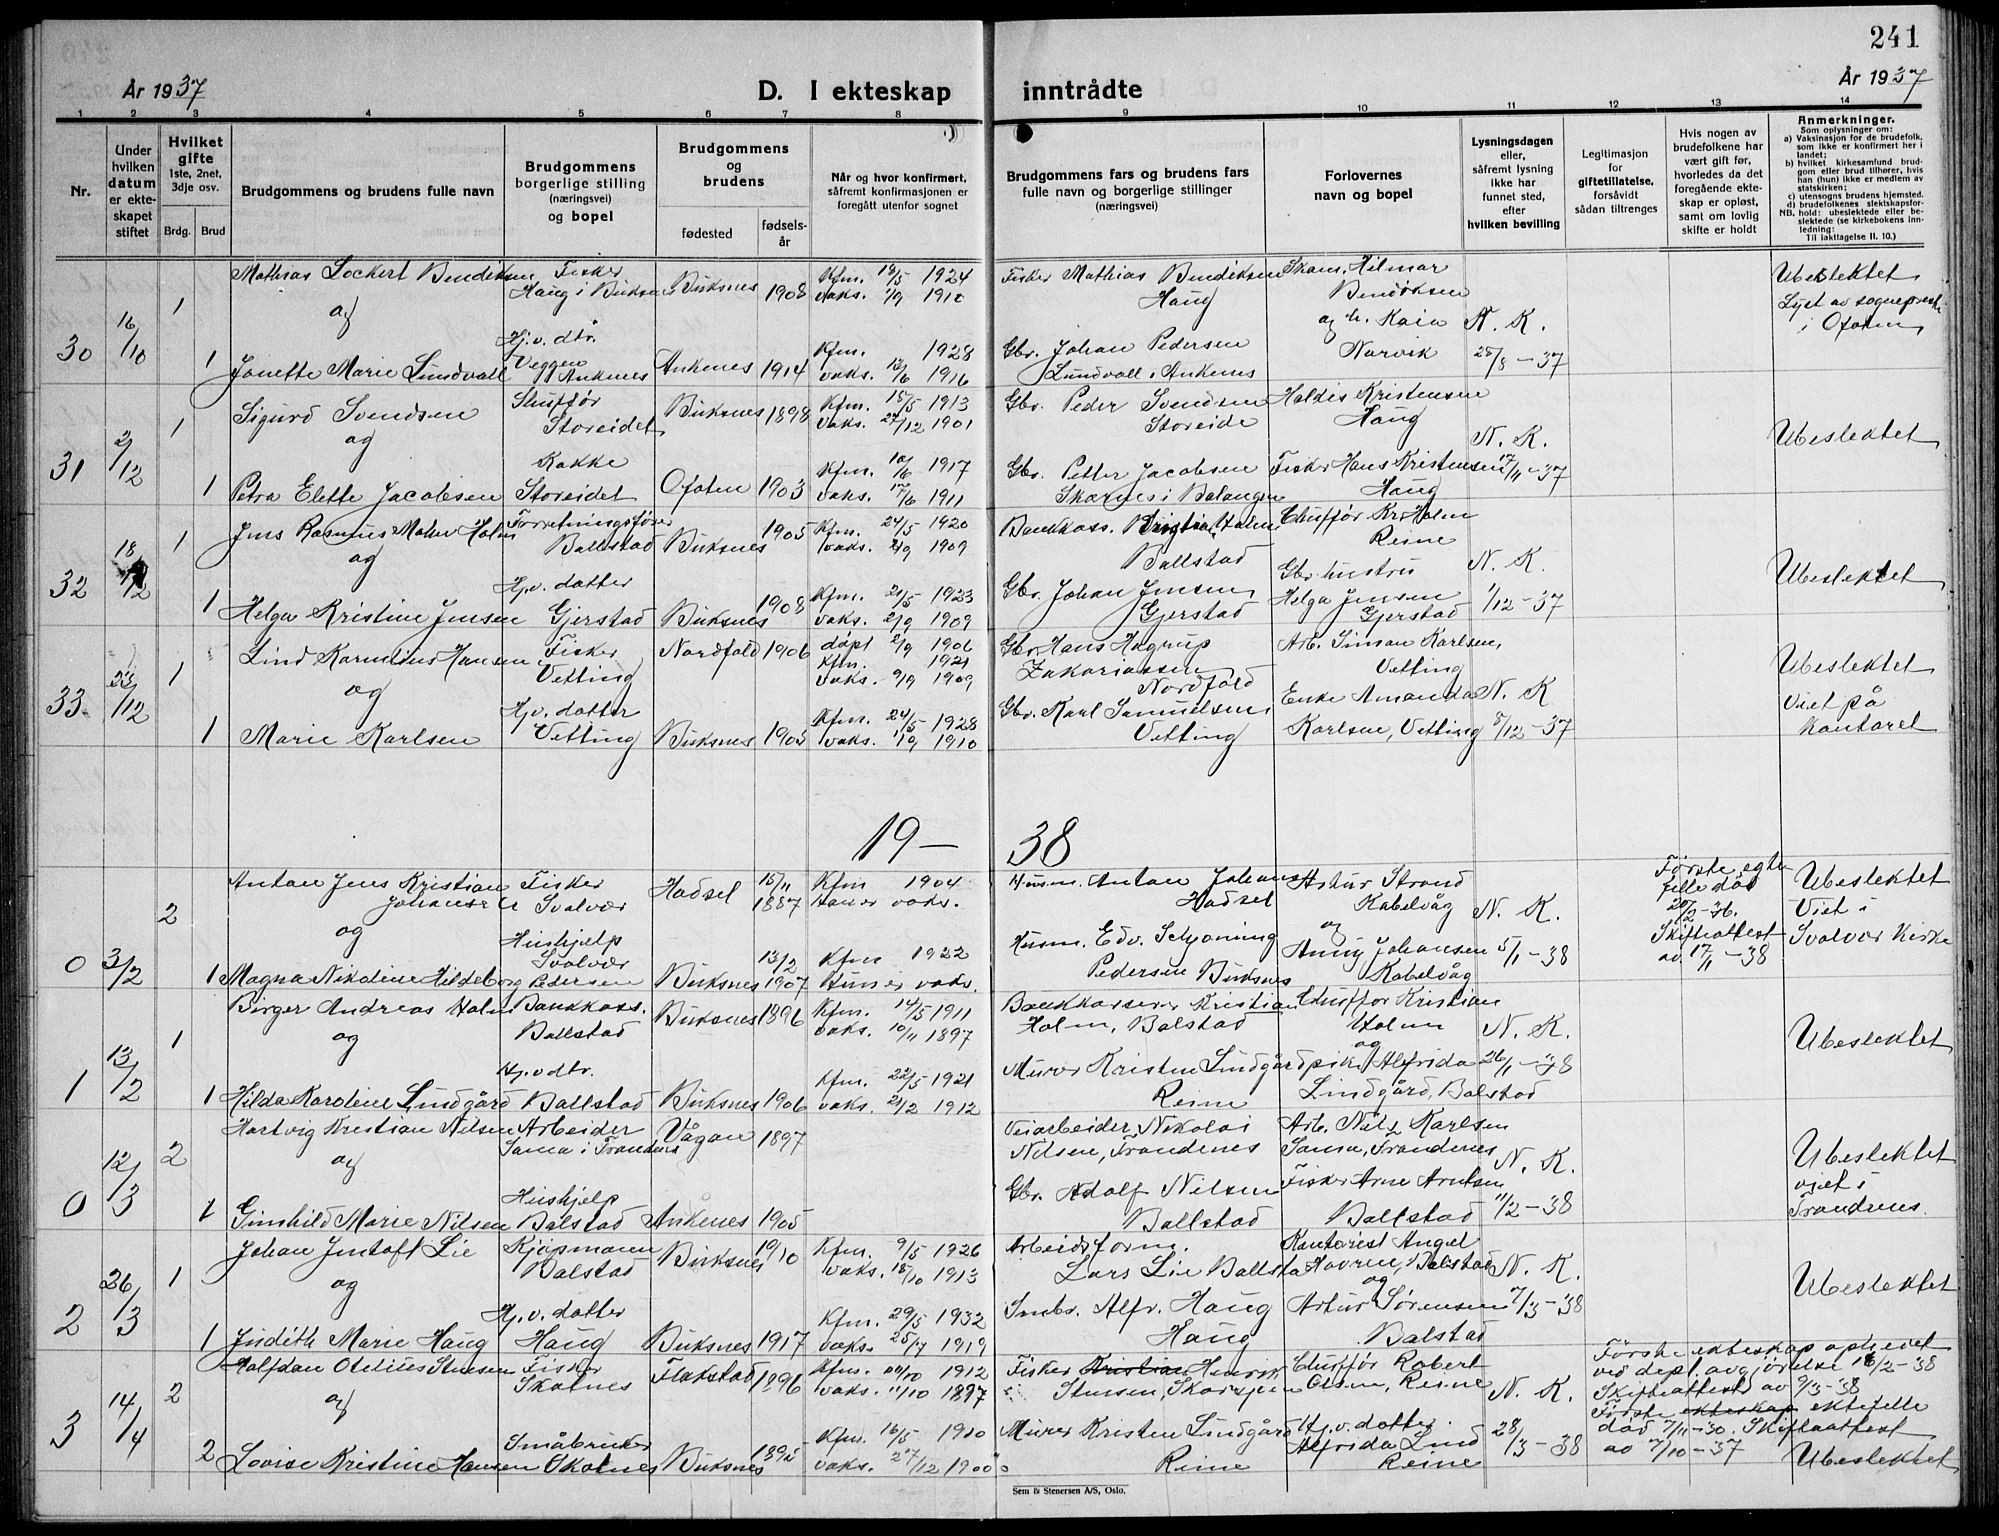 241
År 1937
D. I ekteskap
inntrådte
År 1937
1 2 3 4 5 6 7 8 9 10 11 12 13 14
Nr.
Under hvilken datum er ekte-skapet stiftet
Hvilket gifte
1ste, 2net, 3dje osv.
Brdg. Brud
Brudgommens og brudens fulle navn
Brudgommens borgerlige stilling (næringsvei) og bopel
Brudgommens og brudens
fødested
fødsels-år
Når og hvor konfirmert, såfremt konfirmasjonen er foregått utenfor sognet
Brudgommens fars og brudens fars fulle navn og borgerlige stillinger (næringsvei)
Forlovernes navn og bopel
Lysningsdagen eller, såfremt lysning ikke har funnet sted, efter hvilken bevilling
Legitimasjon for giftetillatelse, forsåvidt sådan tiltrenges
Hvis nogen av brudefolkene har vært gift før, hvorledes da det foregående ekte-skap er opløst, samt om lovlig skifte er holdt
Anmerkninger.
Som oplysninger om:
a) Vaksinasjon for de brudefolk, som ikke er konfirmert her i landet;
b) hvilket kirkesamfund brud-gom eller brud tilhører, hvis han (hun) ikke er medlem av statskirken;
c) utensogns brudens hjemsted.
d) brudefolkenes slektskapsfor-hold: ubeslektede eller be-slektede (se kirkebokens inn-ledning:
NB.
Til iakttagelse II. 10.)
30 16/10 1 Mathias Lockert Bendiksen Fisker Haug i Buksnes Buksnes 1908 Kfm. 18/5 1924 vaks. 1/9 1910 Fisker Mathias Bendiksen Haug Hilmar Bendiksen og h. Kaia Narvik N. K. 28/8-37 Ubeslektet Lyst av sogneprest i Ofoten
og
1 Jonette Marie Lundvall Hj.v. dtr. Veggen Ankenes Ankenes 1914 Kfm. 1928 vaks. 13/6 1916 Gbr. Johan Pedersen Lundvall i Ankenes
31 2/12 1 Sigurd Svendsen Sjuffør Storeidet Buksnes 1898 Kfm. 18/5 1913 vaks. 27/12 1901 Gbr. Peder Svendsen Storeide Haldis Kristensen Haug N. K. 17/11-37 Ubeslektet
og
1 Petra Elette Jacobsen Kokke Storeidet Ofoten 1903 Kfm. 10/6 1917 vaks. 17/6 1911 Gbr. Petter Jacobsen Skarnes i Balangen Fisker Hans Kristensen Haug
32 18/12 1 Jens Rasmus Holm Forretningsfører Ballstad Buksnes 1905 Kfm. 24/5 1920 vaks. 2/9 1909 Bankkass. Kristian Holm Ballstad Chuffør Kr. Holm Reine N. K. 1/12-37 Ubeslektet
og
1 Helga Kristine Jensen Hj.v. datter Gjerstad Buksnes 1908 Kfm. 21/5 1923 vaks. 2/9 1909 Gbr. Johan Jensen Gjerstad Gbr. hustru Helga Jensen Gjerstad
33 23/12 1 Lind Kornelius Hansen Fisker Vetting Nordfold 1906 døpt 2/9 1906 Kfm. 1921 vaks. 9/9 1909 Gbr. Hans Hagrup Zakariassen Nordfold Arb. Simon Karlsen, Vetting N. K. 8/12-37 Ubeslektet Viet på kontoret
og
1 Marie Karlsen Hj.v. datter Vetting Buksnes 1903 Kfm. 24/5 1928 vaks. 1/9 1910 Gbr. Karl Samuelsen, Vetting Enke Amanda Karlsen, Vetting
19-38
0 3/2 2 Anton Jens Kristian Johansen Fisker Svolvær Hadsel 15/11 1887 Kfm 1904 Han er vaks. Husm. Anton Johansen Hadsel Artur Strand Kabelvåg N. K. 5/1-38 Første egte felle død 20/2-36. Skifteattest av 17/11-38 Ubeslektet Viet i Svolvær Kirke
og
1 Magna Nikoline Hildeborg Pedersen Hushjelp Svolvær Buksnes 13/2 1907 Kfm 1922 Hun er vaks. Husm. Edv. Schjøning Pedersen Buksnes og Anny Johansen Kabelvåg
1 13/2 1 Birger Andreas Holm Bankkass. Ballstad Buksnes 1896 Kfm. 14/5 1911 vaks. 10/11 1897 Bankkasserer Kristian Holm, Balstad Chuffør Kristian Holm N. K. 26/1-38 Ubeslektet
og
1 Hilda Karoline Lindgård Hj.v. dtr. Ballstad Buksnes 1906 Kfm. 22/5 1921 vaks. 21/2 1912 Murer Kristen Lindgård Reine og pike Alfrida Lindgård, Balstad
0 12/3 2 Hartvig Kristian Nilsen Arbeider Sama i Trondenes Vågan 1897 Veiarbeider Nikolai Nilsen, Trondenes Arb. Nils Karlsen Sama, Trondenes N. K. 11/2-38 Ubeslektet viet i Trondenes.
og
1 Gunhild Marie Nilsen Hushjelp Balstad Ankenes 1905 Gbr. Adolf Nilsen Ballstad Fisker Arne Arntsen Ballstad
2 26/3 1 Johan Lie Kjøpmann Balstad Buksnes 19/10 Kfm. 9/5 1926 vaks. 18/10 1913 Arbeidsform. Lars Lie Ballstad Kontorist Angel Balstad N. K. 7/3-38 Ubeslektet
og
1 Judith Marie Haug Hj.v. datter Haug Buksnes 1917 Kfm. 29/5 1932 vaks. 25/7 1919 Smbr. Alfr. Haug Haug og Artur Sørensen Balstad
3 14/4 2 Halfdan Otelius Stensen Fisker Skotnes Flakstad 1896 Kfm. 20/10 1912 vaks. 11/10 1897 Fisker Kristian Henrik Stensen, Chuffør Robert Olsen, Reine N. K. 28/3-38 Første ekteskap opløst ved dept. avgjørelse 16/2-38 Skifteattest av 9/3-38
og
2 Lovise Kristine Hansen Småbruker Skotnes Buksnes 1895 Kfm. 16/5 1910 vaks. 27/12 1900 Murer Kristen Lindgård Reine Hj.v. datter Alfrida Lind Reine Første ekteskap ektefelle død 7/11-30. Skifteattest av 7/10-37 Ubeslektet
Sem & Stenersen A/S, Oslo.